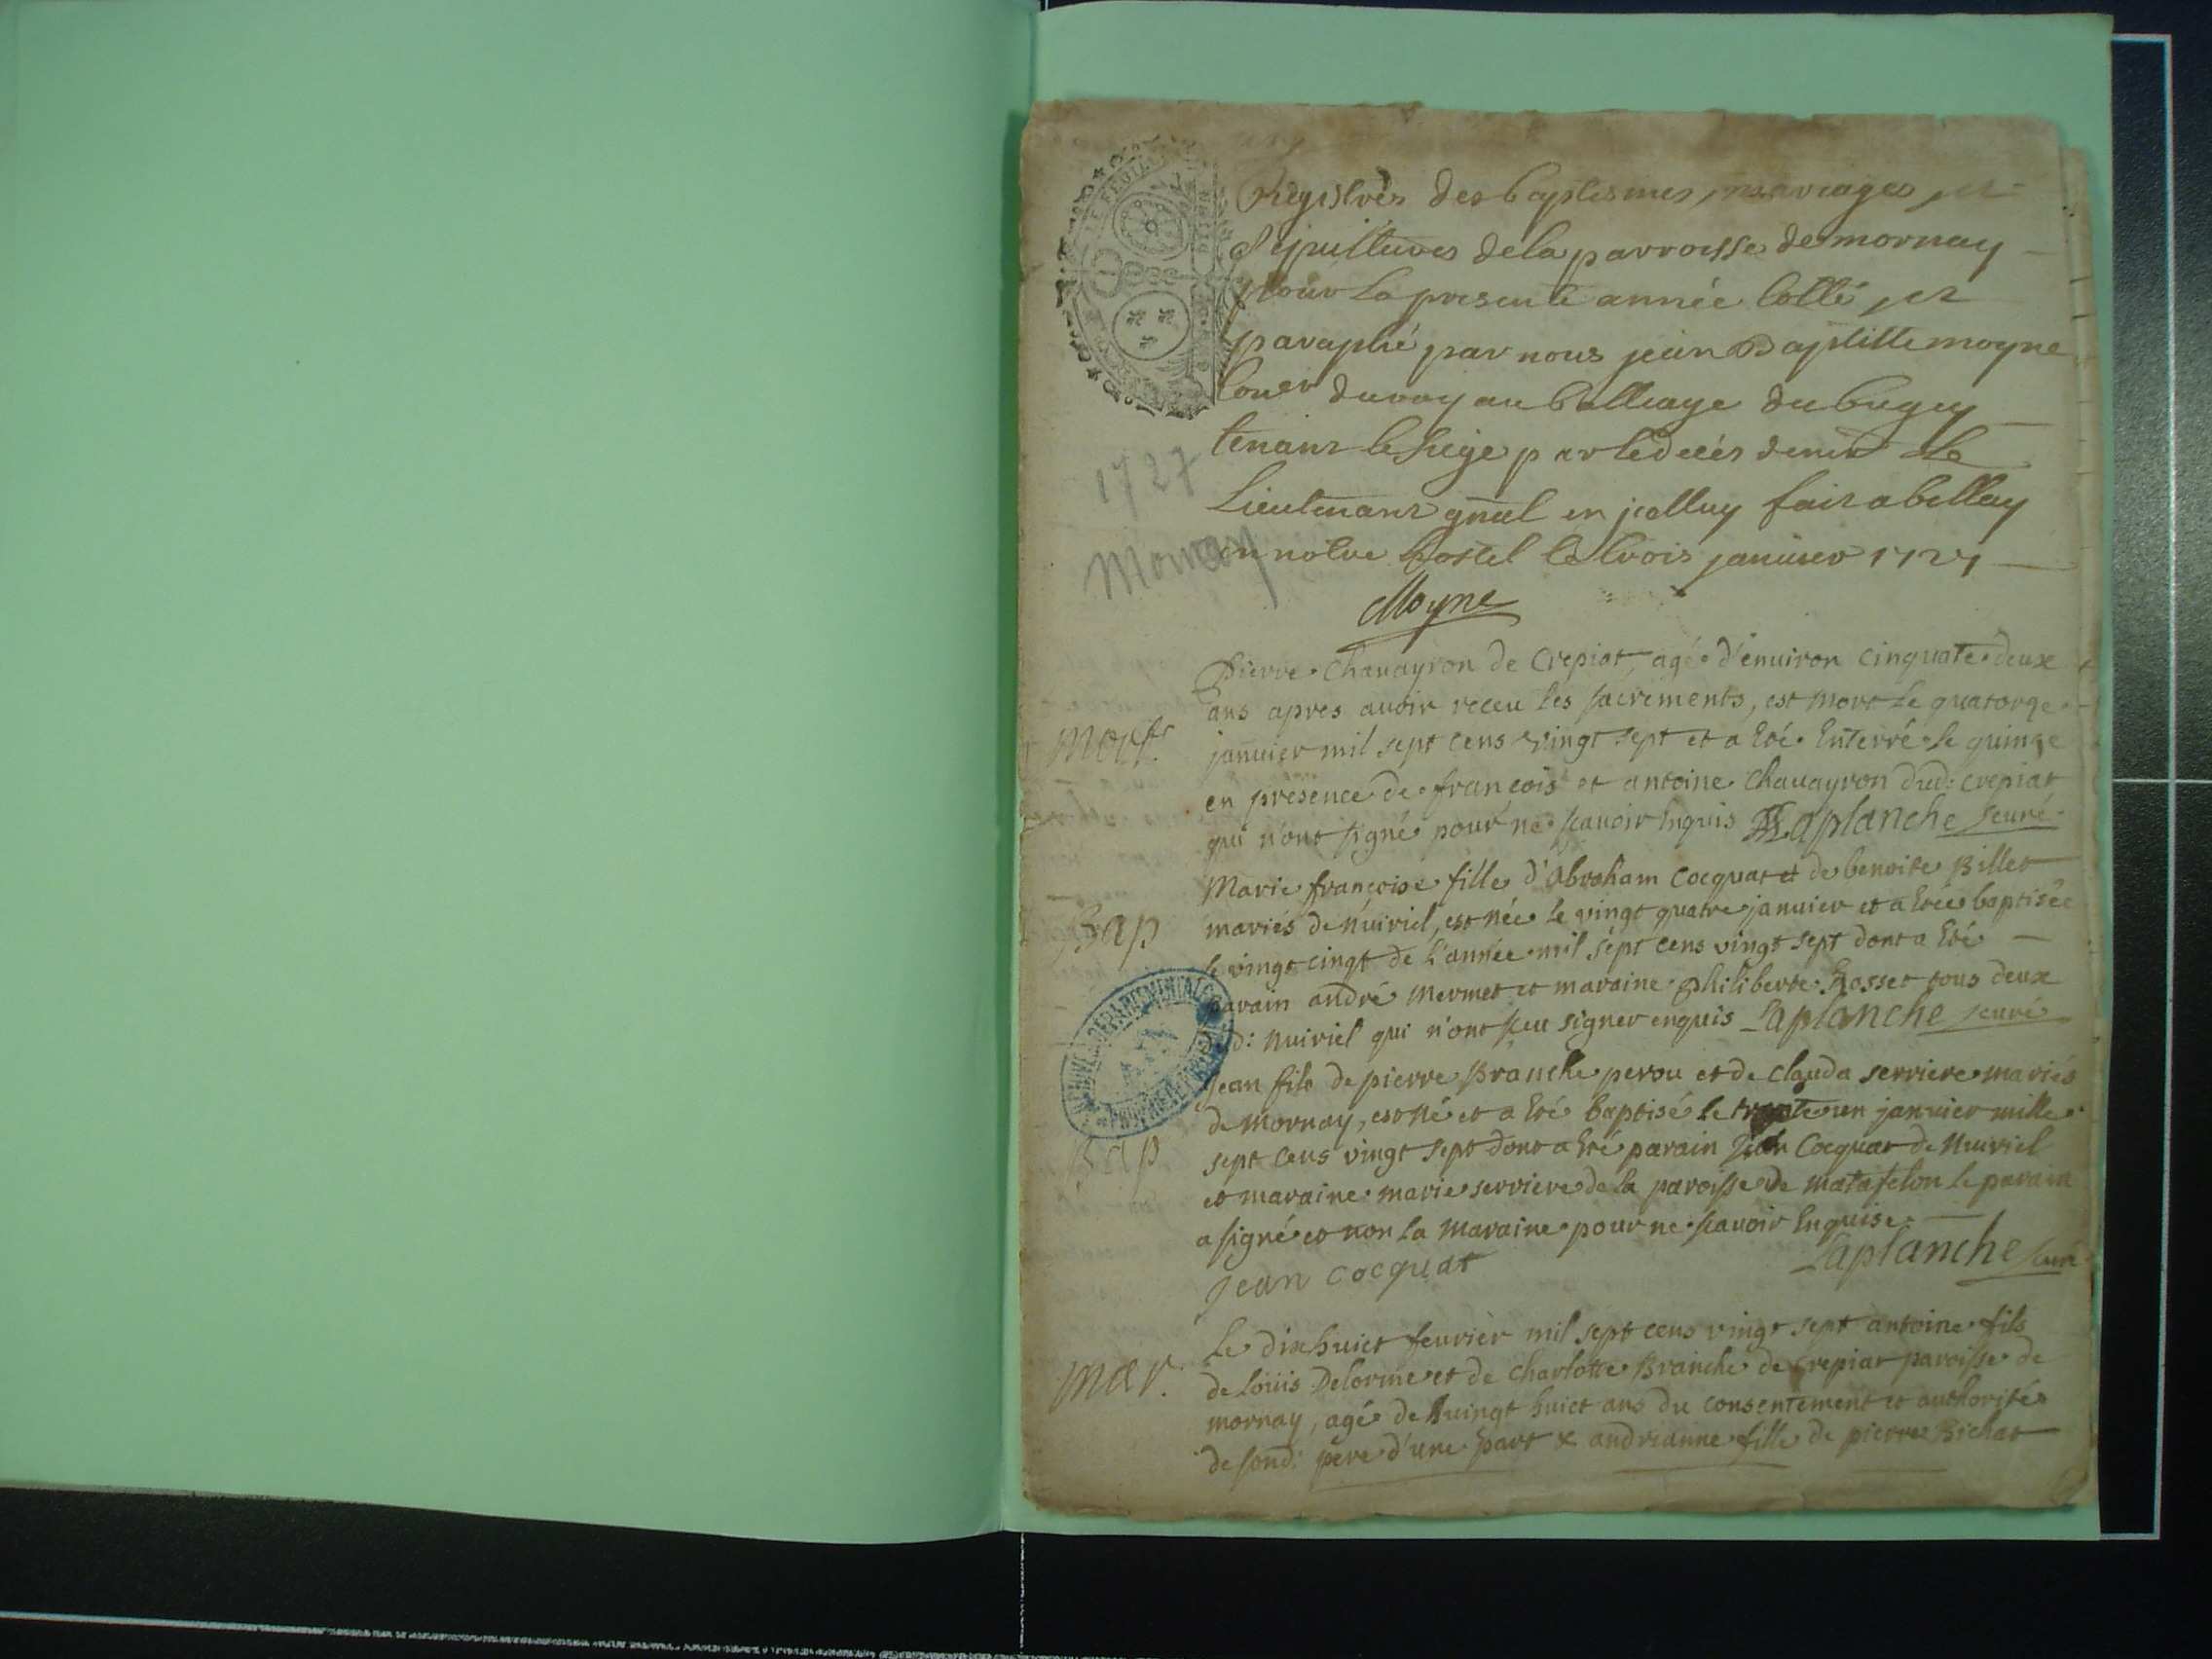 Registres des baptesmes, mariages, et
Sepultures de la parroisse de mornay
pour la presente année Cotté, et
paraphé par nous jean Baptiste moyne
Coner du roy au balliage du bugey
tenant le siege par le decés de mr le
Lieutenant gnal en icelluy fait a bellay
en notre hostel le trois janvier 1727
1727
Mornay
Moyne
Pierre Chauayron de Crepiat, agé d'enuiron cinquate deux
ans apres auoir receu les sacrements, est mort le quatorze
mort.
januier mil sept cens vingt sept et a Eté Enterré le quinze
en presence de françois et antoine Chauayron dud: Crepiat
qui n'ont signé pour ne sçauoir Enquis Laplanche curé
Marie françoise fille d'Abraham Cocquat et de benoite Billet
Bap
mariés de Nuiriel, est née le vingt quatre januier et a Etée baptisée
le vingt cinqt de l'année mil sept cens vingt sept dont a Eté
parain andré Mermet et maraine philiberte Rosset tous deux
dud: Nuiriel qui n'ont sceu signer enquis Laplanche curé
Jean fils de pierre Branche perou et de Clauda serriere mariés
de Mornay, est né et a Eté baptisé le trente un januier mille
Bap
sept cens vingt sept dont a Eté parain Jean Cocquat de Nuiriel
et maraine marie serriere de la paroisse de Matafelon le parain
a signé et non la Maraine pour ne sçauoir Enquise.
Jean Cocquat Laplanche curé
Le dixhuict feurier mil sept cens vingt sept antoine fils
mar.
de Loüis Delorme et de Charlotte Branche de Crepiat paroisse de
mornay, agé de vingt huict ans du consentement et authorité
de sond: père d'une part & andrianne fille de pierre Bichat